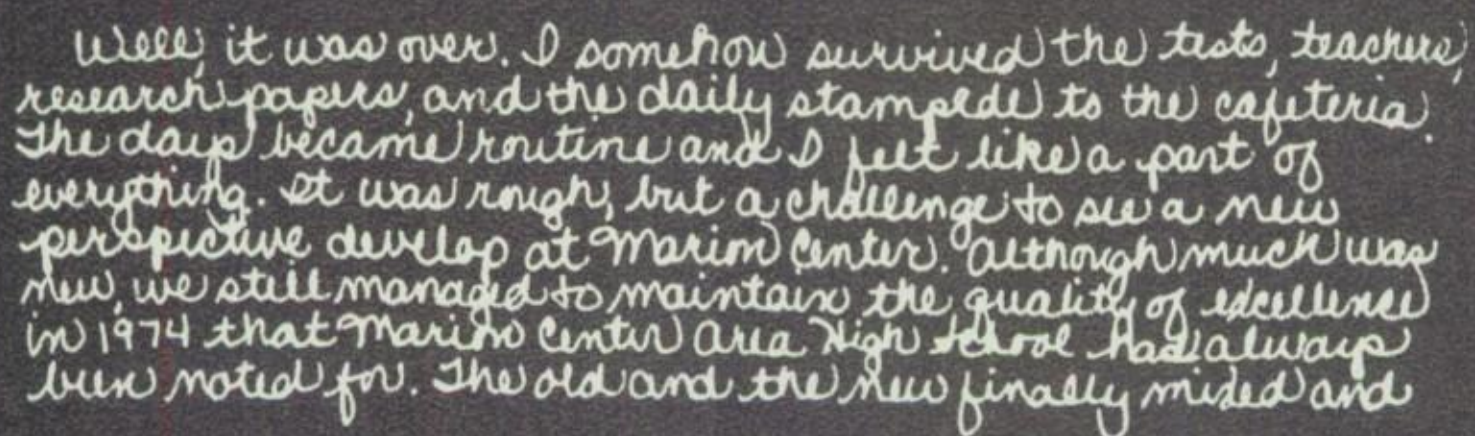 Well, it was over. I somehow survived the tests, teachers,
research papers, and the daily stampede to the cafeteria.
The days became routine and I felt like a part of
everything. It was rough, but a challenge to see a new
perspective develop at Marion Center. Although much was
new, we still managed to maintain the quality of excellence
in 1974 that Marion Center Area High School had always
been noted for. The old and the new finally mixed and